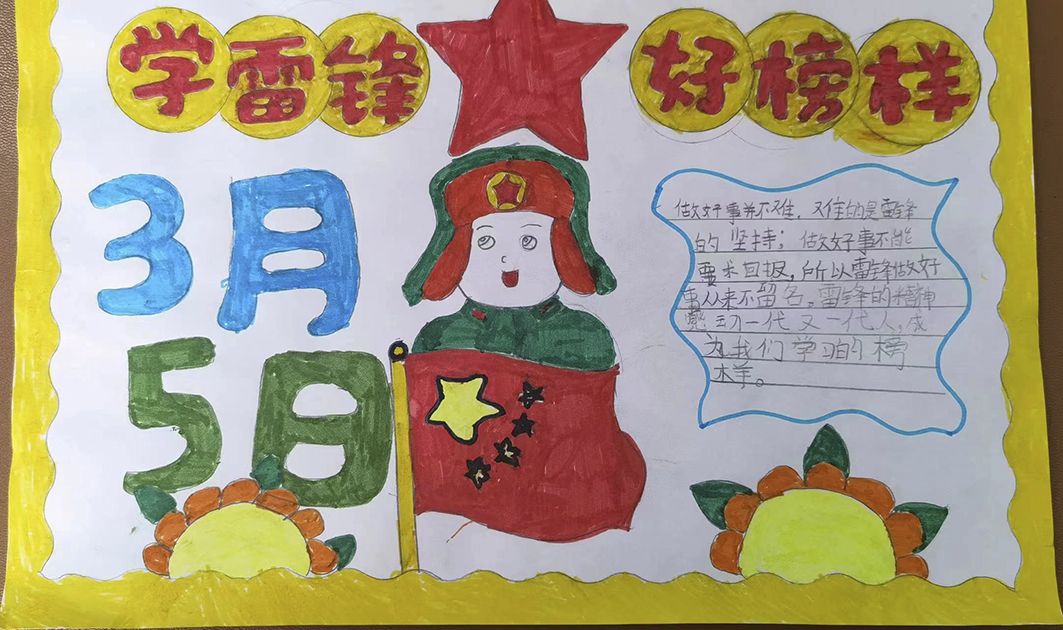 学雷锋 好榜样
3月
5日
做好事并不难，难的是雷锋
的坚持；做好事不能
要求回报，所以雷锋做好
事从来不留名。雷锋的精神
感动一代又一代人，成
为我们学习的榜
样。